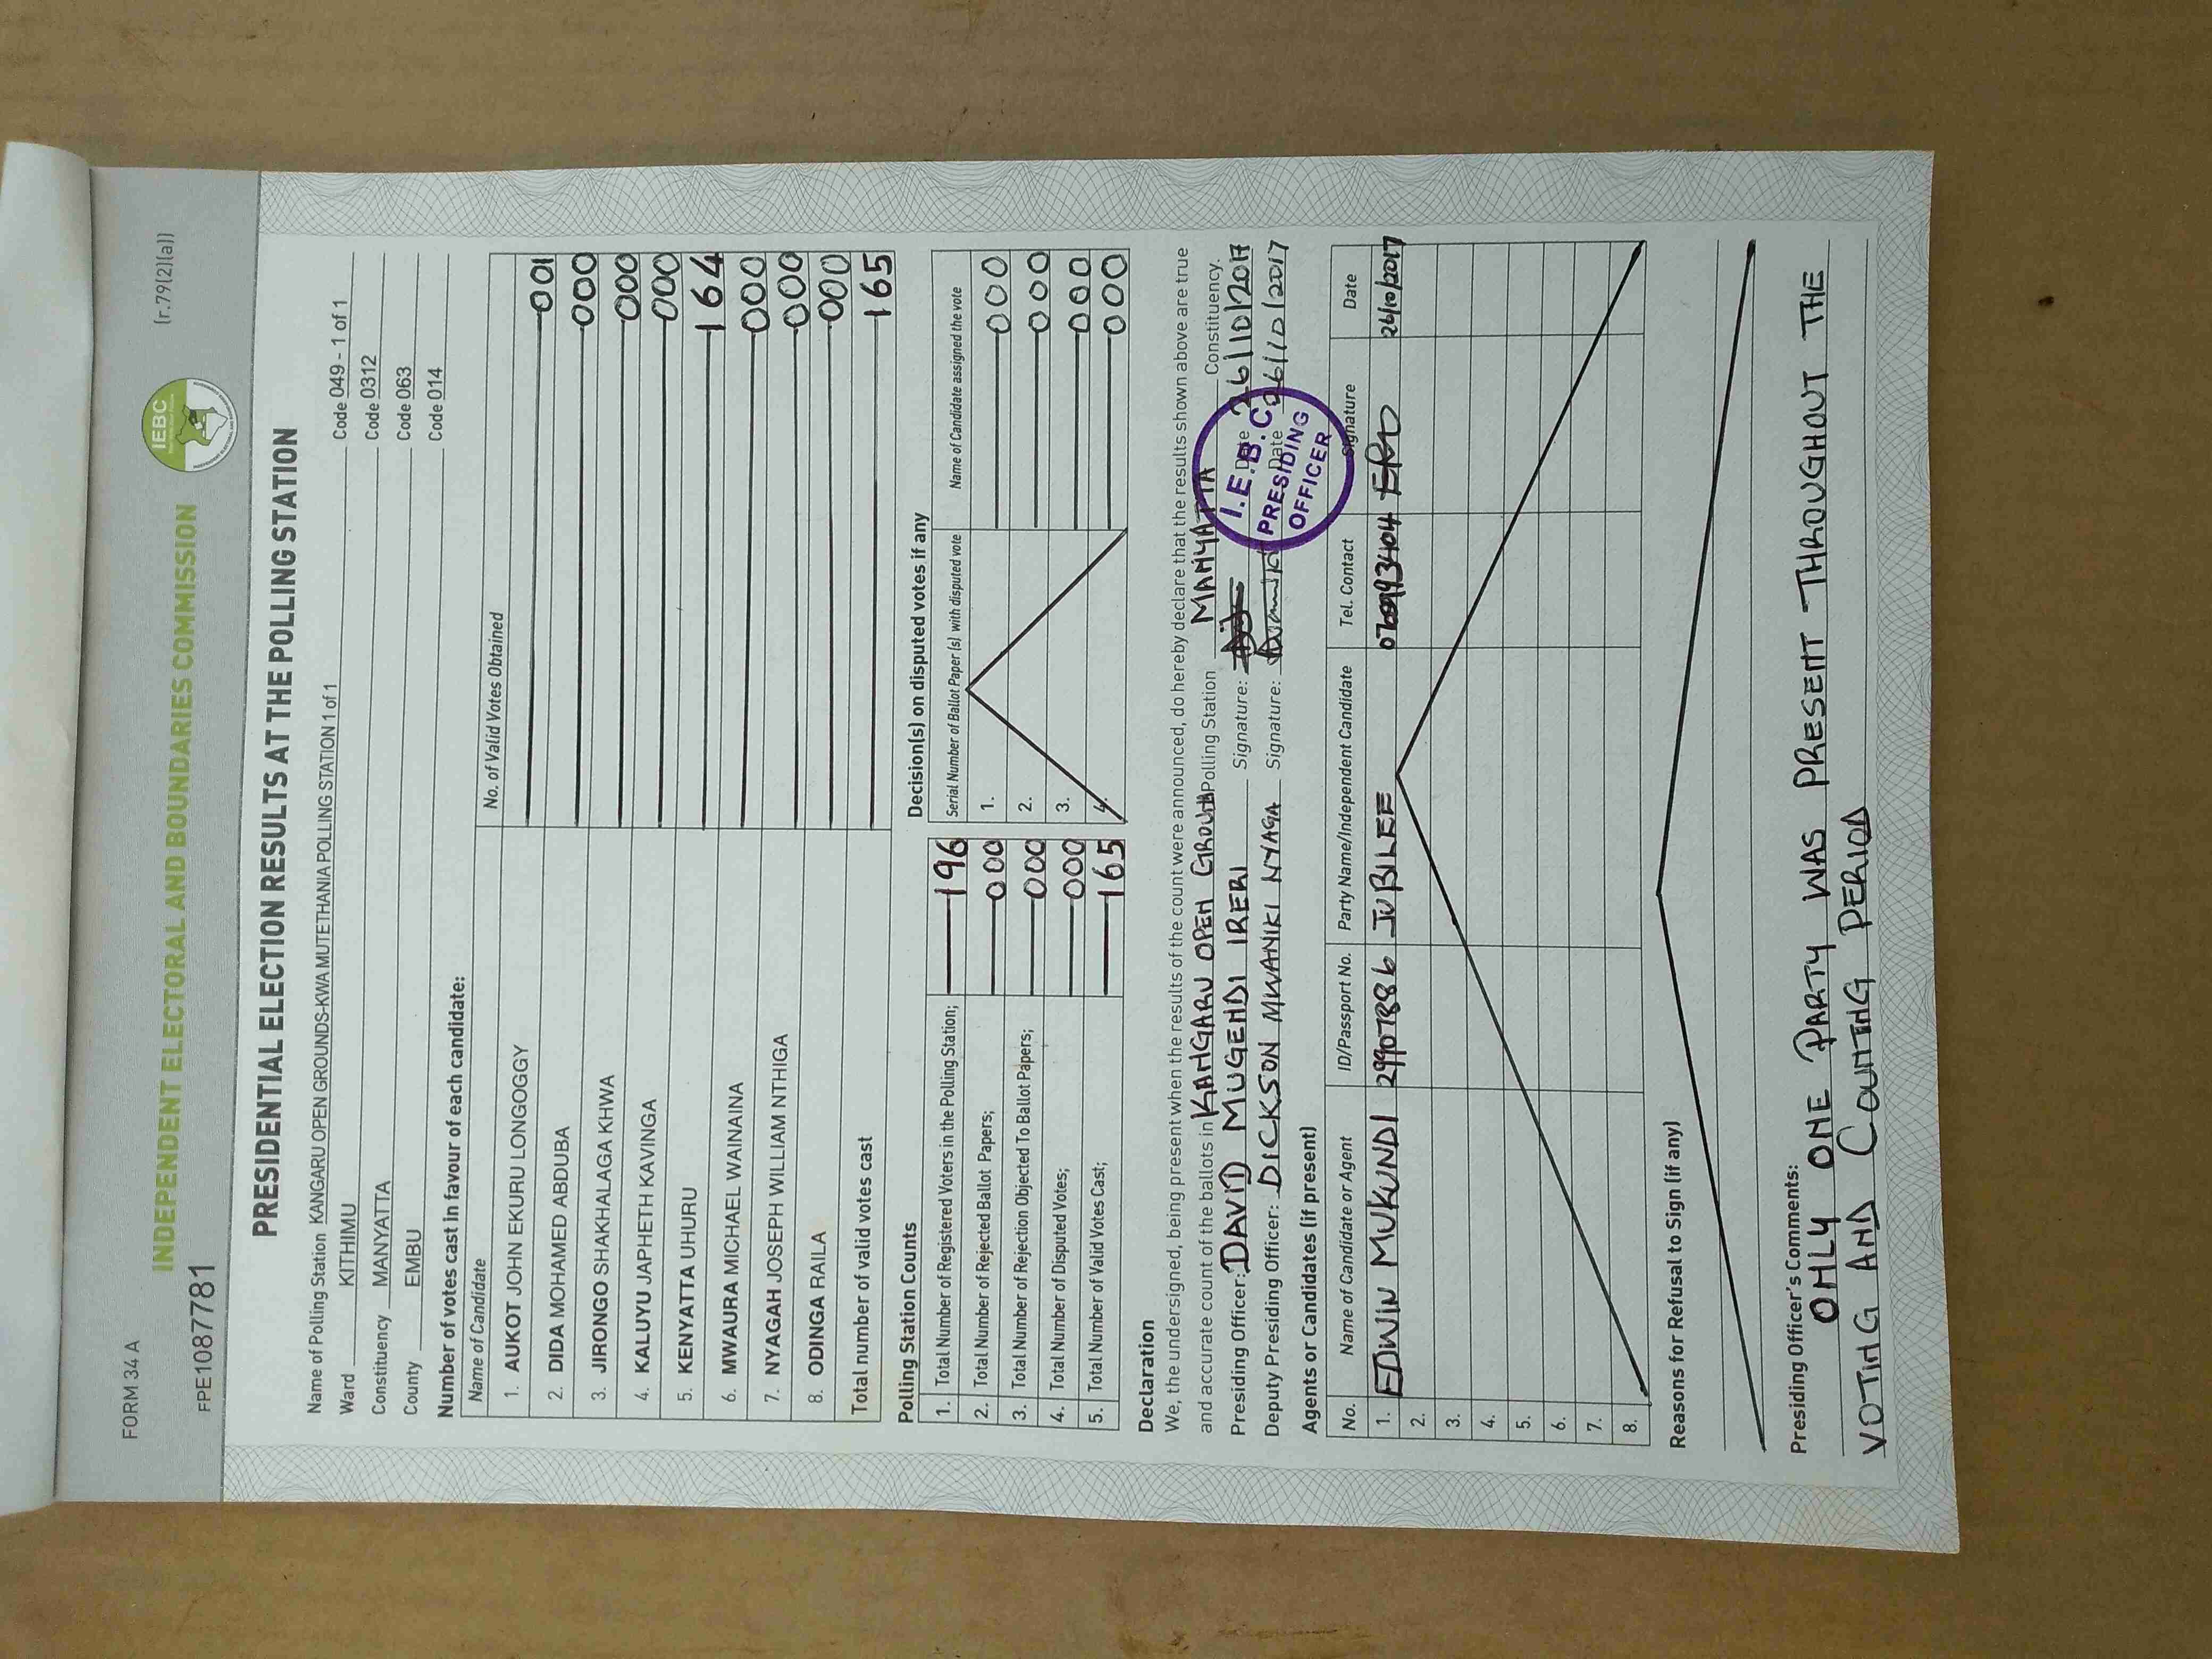 FORM 34 A
(r.79(2)(a))
IEBC
INDEPENDENT ELECTORAL AND BOUNDARIES COMMISSION
FPE1087781
PRESIDENTIAL ELECTION RESULTS AT THE POLLING STATION
Name of Polling Station KANGARU OPEN GROUNDS-KWA MUTETHANIA POLLING STATION 1 of 1 Code 049 - 1 of 1
Ward KITHIMU Code 0312
Constituency MANYATTA Code 063
County EMBU Code 014
Number of votes cast in favour of each candidate:
Name of Candidate No. of Valid Votes Obtained
1. AUKOT JOHN EKURU LONGOGGY 001
2. DIDA MOHAMED ABDUBA 000
3. JIRONGO SHAKHALAGA KHWA 000
4. KALUYU JAPHETH KAVINGA 000
5. KENYATTA UHURU 164
6. MWAURA MICHAEL WAINAINA 000
7. NYAGAH JOSEPH WILLIAM NTHIGA 000
8. ODINGA RAILA 000
Total number of valid votes cast 165
Polling Station Counts
1. Total Number of Registered Voters in the Polling Station; 196
2. Total Number of Rejected Ballot Papers; 000
3. Total Number of Rejection Objected To Ballot Papers; 000
4. Total Number of Disputed Votes; 000
5. Total Number of Valid Votes Cast; 165
Decision(s) on disputed votes if any
Serial Number of Ballot Paper (s) with disputed vote Name of Candidate assigned the vote
1. 000
2. 000
3. 000
4. 000
Declaration
We, the undersigned, being present when the results of the count were announced, do hereby declare that the results shown above are true
and accurate count of the ballots in KANGARU OPEN GROUND Polling Station MANYATTA Constituency.
Presiding Officer: DAVID MUGENDI IRERI Signature: Date 26/10/2017
Deputy Presiding Officer: DICKSON MWANIKI NYAGA Signature: Date 26/10/2017
I.E.B.C
PRESIDING
OFFICER
Agents or Candidates (if present)
No. Name of Candidate or Agent ID/Passport No. Party Name/Independent Candidate Tel. Contact Signature Date
1. EDWIN MUKUNDI 29907886 JUBILEE 26/10/2017
2.
3.
4.
5.
6.
7.
8.
Reasons for Refusal to Sign (if any)
Presiding Officer's Comments:
ONLY ONE PARTY WAS PRESENT THROUGHOUT THE
VOTING AND COUNTING PERIOD